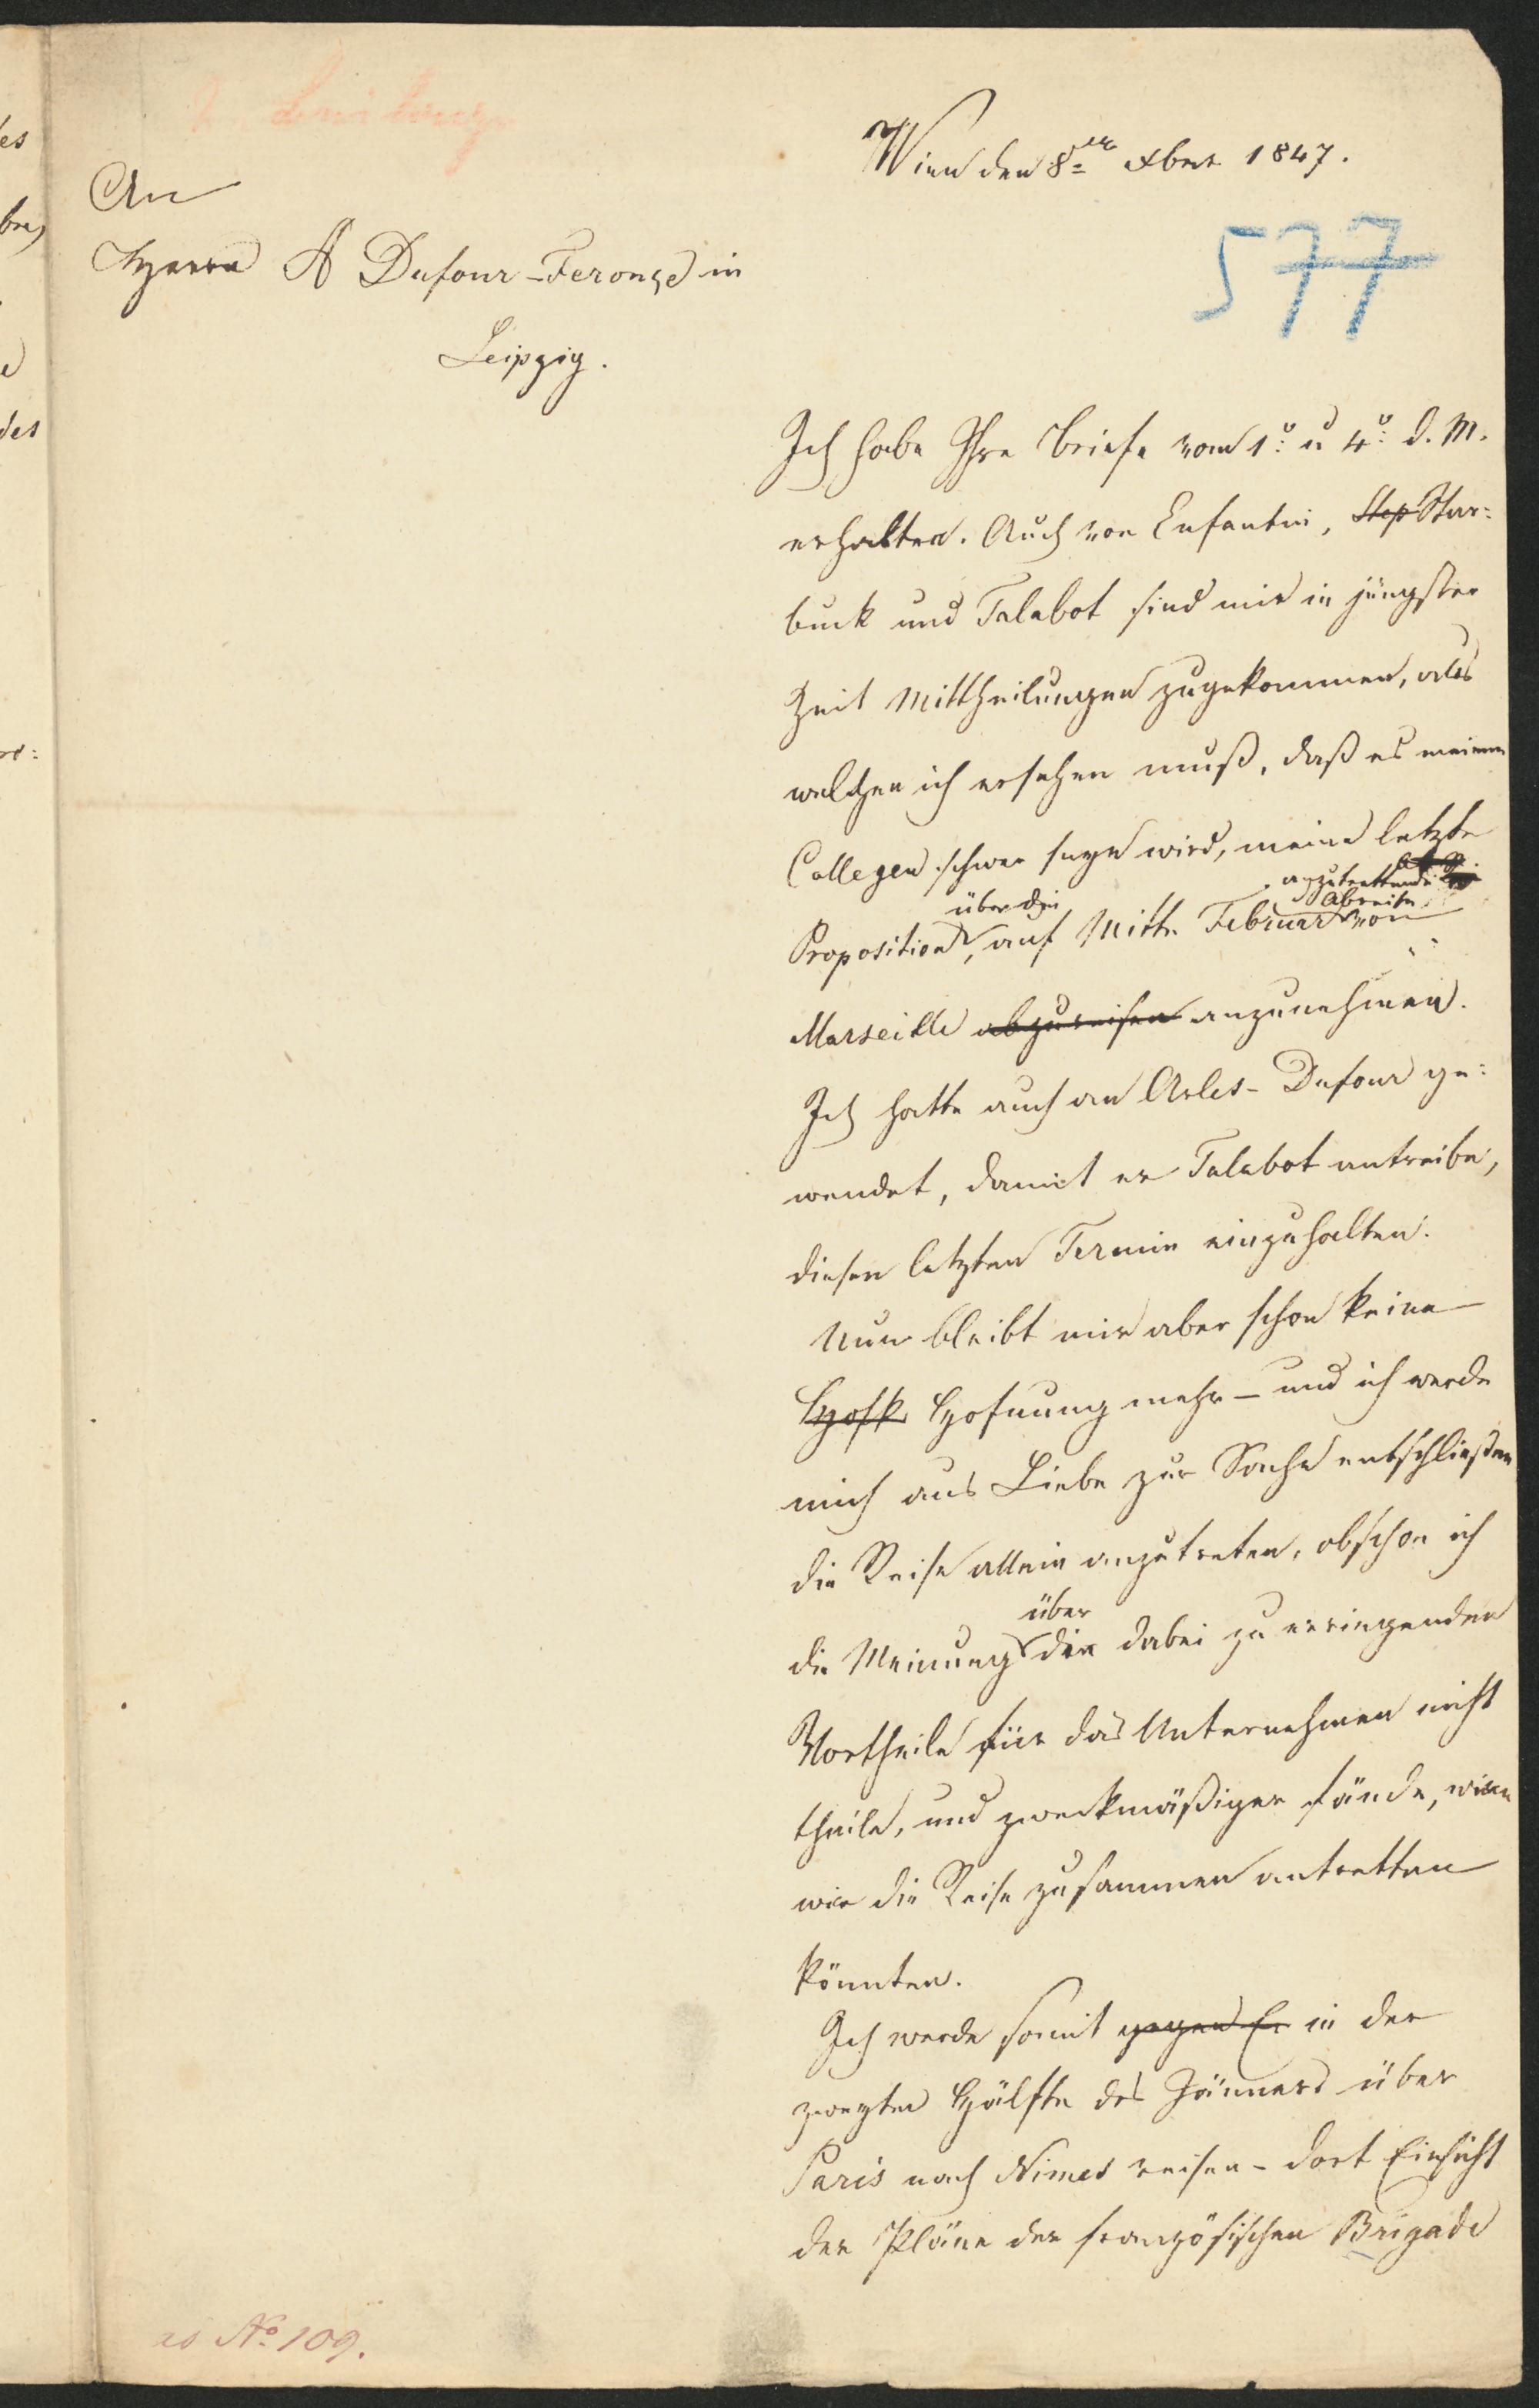 Wien den 8ten Xber 1847.
An
Herrn A Dufour-Feronçe in
Leipzig.
577
Ich habe Ihre Briefe vom 1º u 4º d. M.
erhalten. Auch von Enfantin, Step Star=
buck und Talabot sind mir in jüngster
Zeit Mittheilungen zugekommen, aus
welchen ich ersehen muß, daß es meinen
Collegen schwer seyn wird, meine letzte
über die anzutrettende
Abreise
Proposition, auf Mitte Februar von
Marseille abzureisen anzunehmen.
Ich hatte auch an Arles-Dufour ge=
wendet, damit er Talabot antreibe,
diesen letzten Termin einzuhalten.
Nun bleibt mir aber schon keine
Hofnung mehr – und ich werde
mich aus Liebe zur Sache entschließen
die Reise allein anzutreten, obschon ich
über
die Meinung der dabei zu erringenden
Vortheile für das Unternehmen nicht
theile, und zweckmäßiger fände, wenn
wir die Reise zusammen antretten
könnten.
Ich werde somit gegen E in der
zweyten Hälfte des Jänners über
Paris nach Nimes reisen – dort Einsicht
der Pläne der französischen Brigade
ad Nº 109.